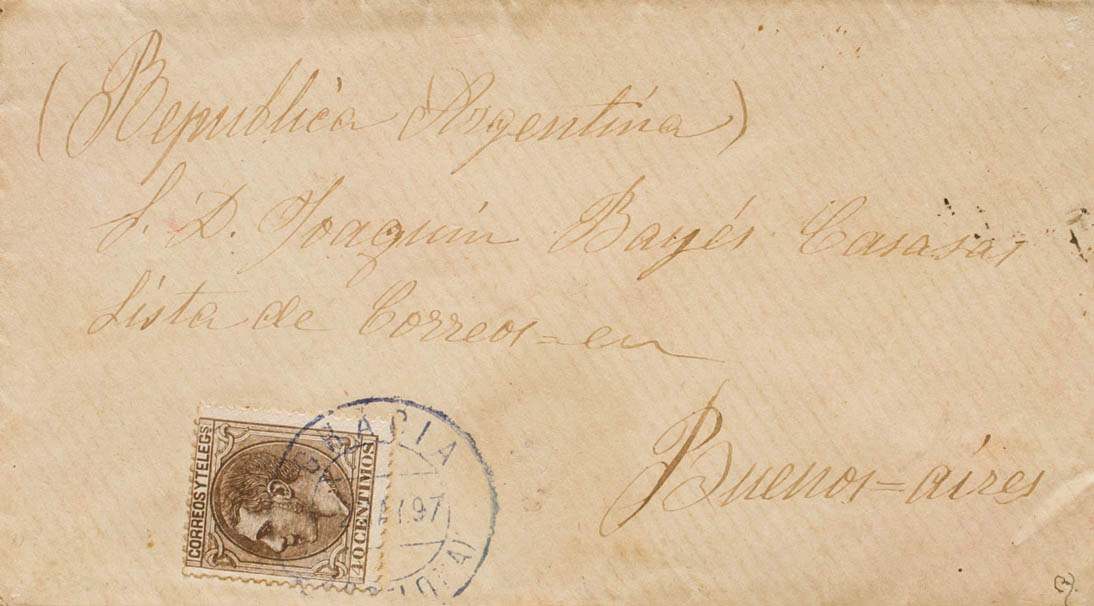 (Republica Argentina)
S. D. Joaquín Bayés Casasas
Lista de Correos=en
Buenos=aires
CORREOS Y TELEGS
40 CENTIMOS
97